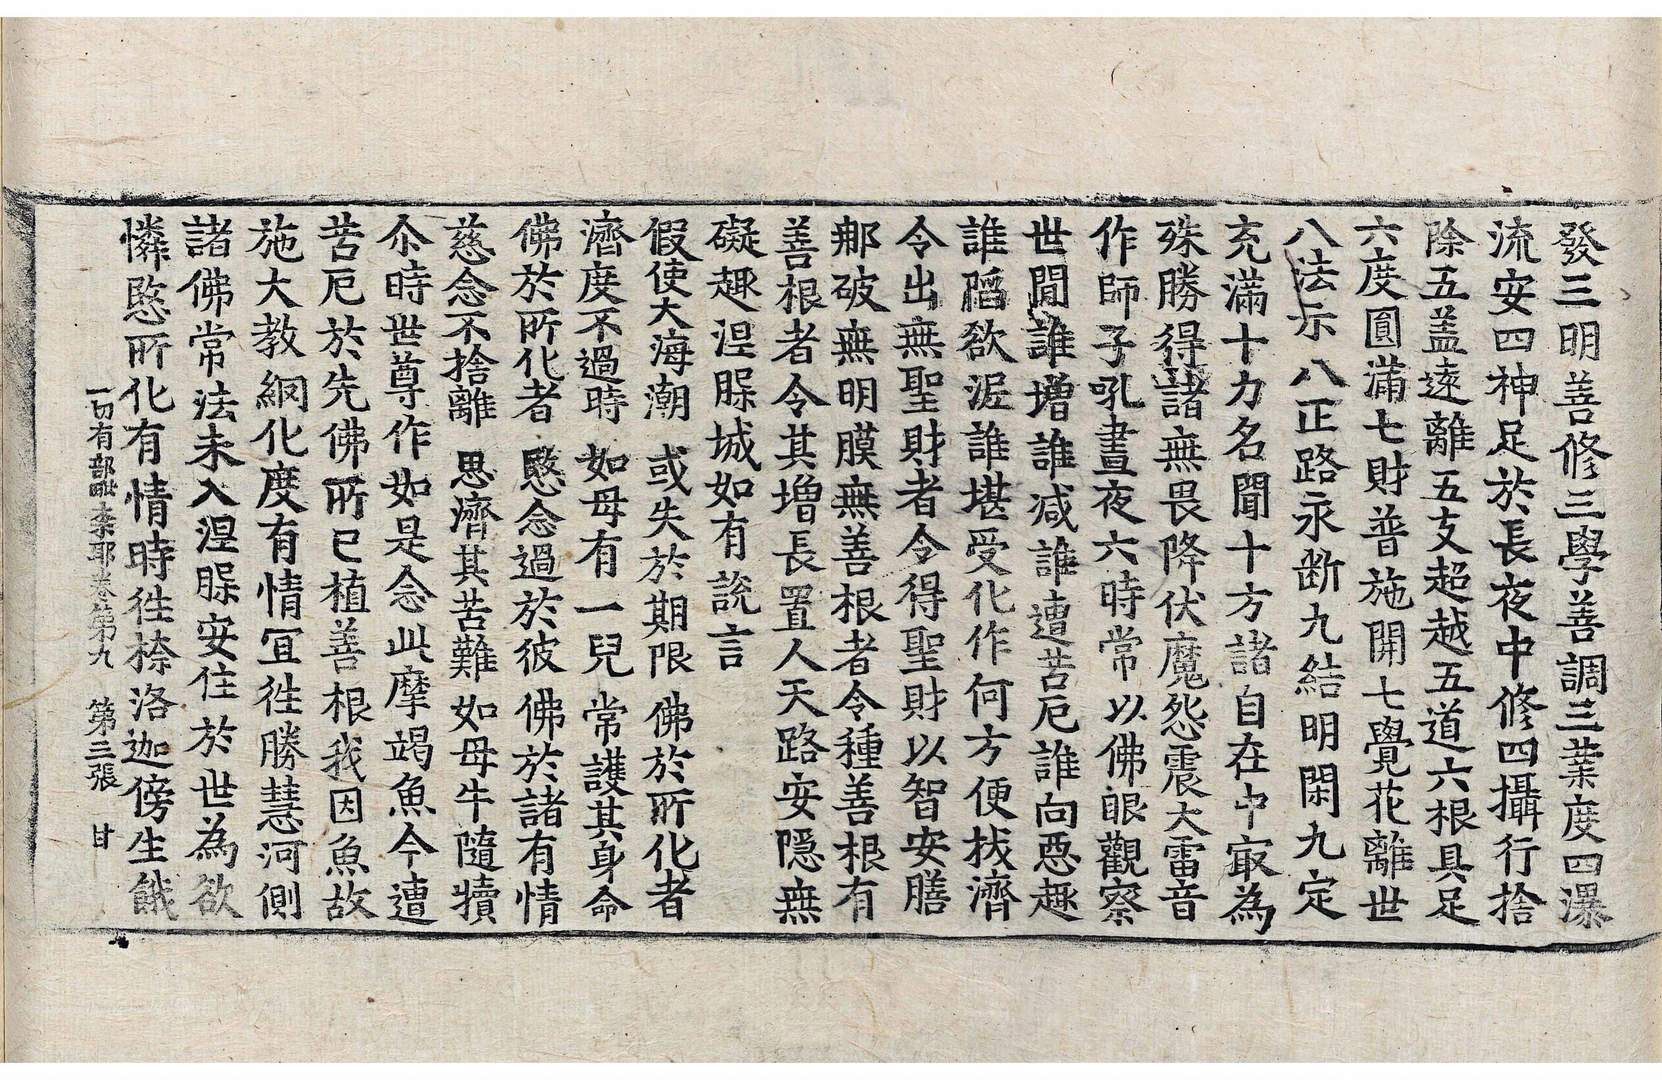 發三明善修三學善調三業度四瀑
流安四神足於長夜中修四攝行捨
除五盖遠離五支超越五道六根具足
六度圓滿七財普施開七覺花離世
八法示八正路永断九結明閑九定
充滿十力名聞十方諸自在中㝡為
殊勝得諸無畏降伏魔怨震大雷音
作師子吼晝夜六時常以佛眼觀察
世間誰增誰减誰遭苦厄誰向惡趣
誰䧟欲泥誰堪受化作何方便拔濟
令出無聖財者令得聖財以智安膳
那破無明膜無善根者令種善根有
善根者令其增長置人天路安隱無
礙趣涅槃城如有說言
假使大海潮　或失於期限　佛於所化者
濟度不過時　如母有一兒　常護其身命
佛於所化者　愍念過於彼　佛於諸有情
慈念不捨離　思濟其苦難　如母牛隨犢
尒時世尊作如是念此摩竭魚今遭
苦厄於先佛所已植善根我因魚故
施大教網化度有情冝往勝慧河側
諸佛常法未入涅槃安住於世為欲
憐愍所化有情時往捺洛迦傍生餓
一切有部毗柰耶卷第九　第三張　甘